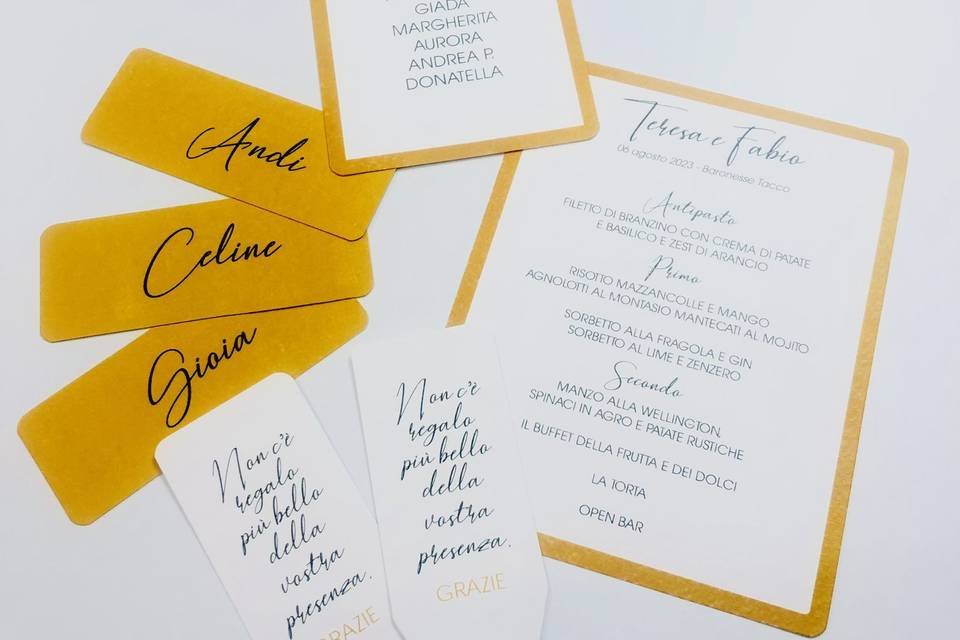 GIADA
MARGHERITA
AURORA
ANDREA P.
DONATELLA
Andi
Celine
Gioia
Non c'è
regalo
più bello
della
vostra
presenza.
GRAZIE
Non c'è
regalo
più bello
della
vostra
presenza.
GRAZIE
Teresa e Fabio
06 agosto 2023 - Baronesse Tacco
Antipasto
FILETTO DI BRANZINO CON CREMA DI PATATE
E BASILICO E ZEST DI ARANCIO
Primo
RISOTTO MAZZANCOLLE E MANGO
AGNOLOTTI AL MONTASIO MANTECATI AL MOJITO
SORBETTO ALLA FRAGOLA E GIN
SORBETTO AL LIME E ZENZERO
Secondo
MANZO ALLA WELLINGTON,
SPINACI IN AGRO E PATATE RUSTICHE
IL BUFFET DELLA FRUTTA E DEI DOLCI
LA TORTA
OPEN BAR